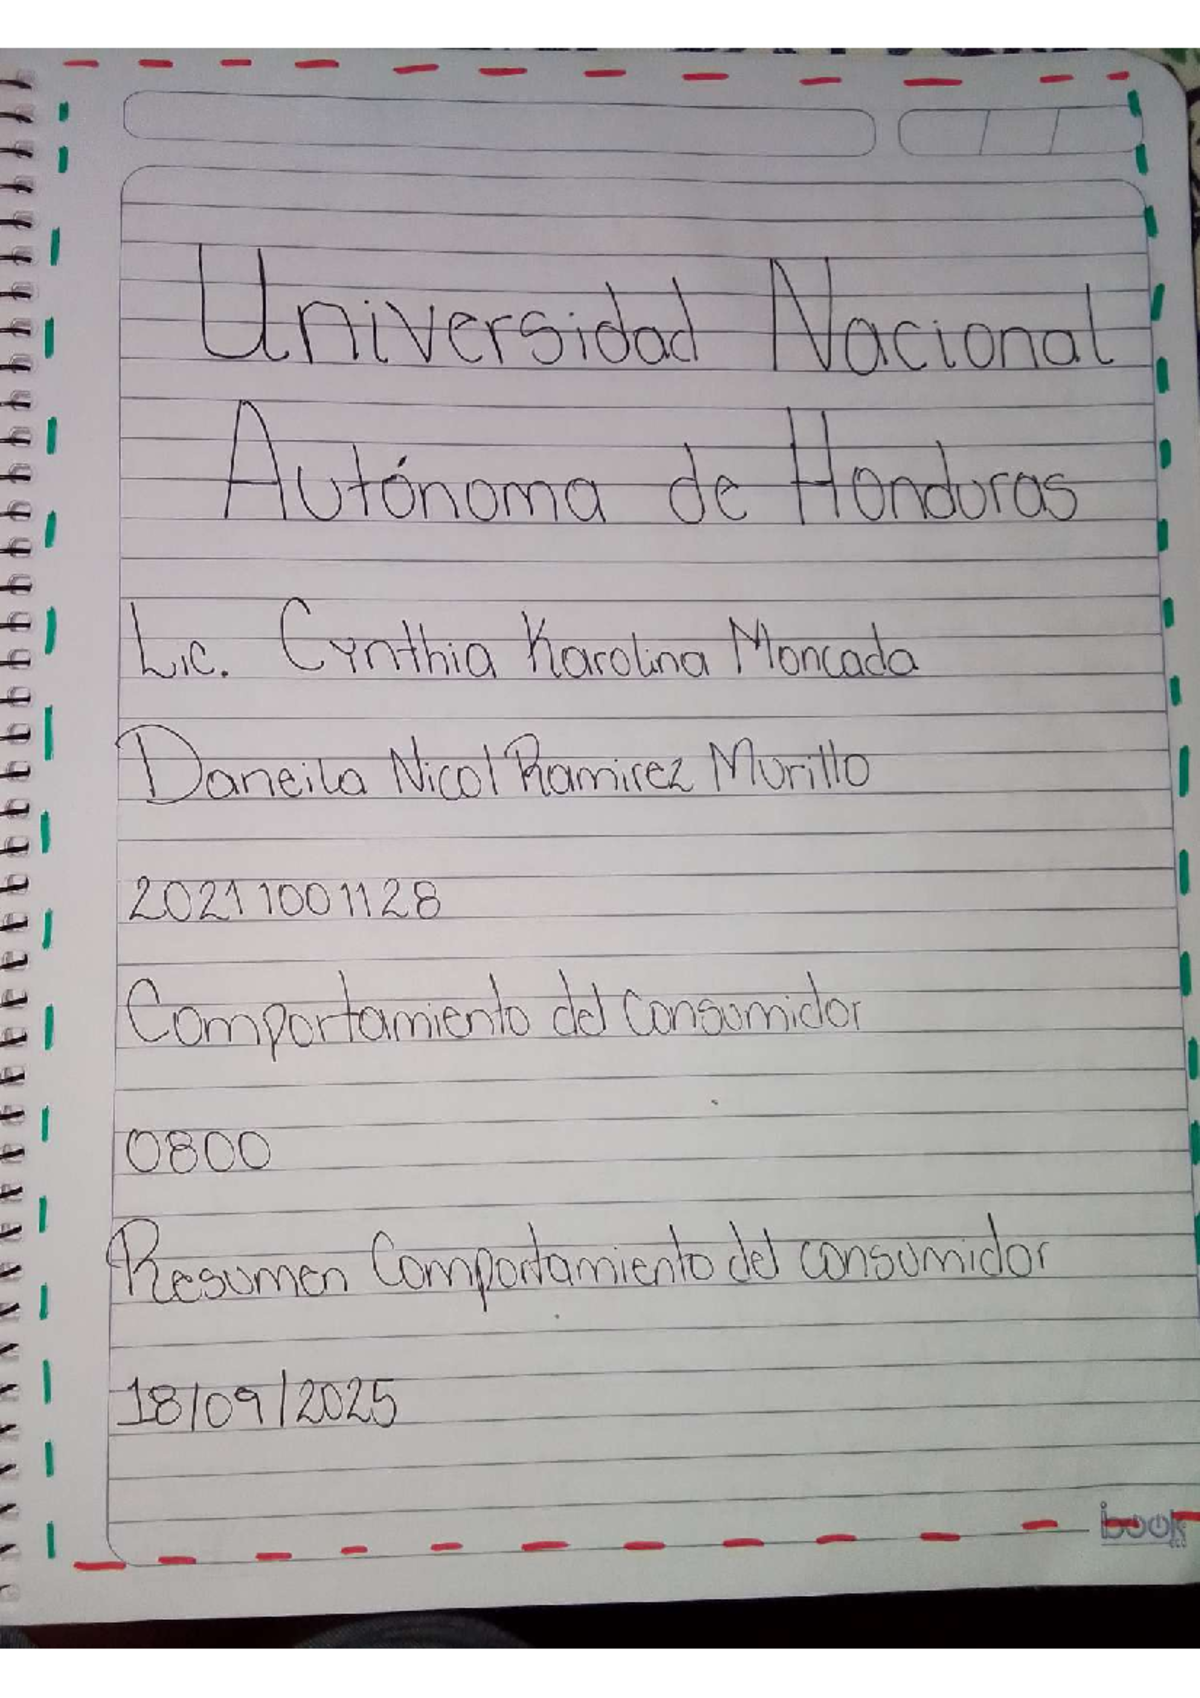 Universidad Nacional
Autónoma de Honduras
Lic. Cynthia Karolina Moncada
Daneila Nicol Ramirez Murillo
20211001128
Comportamiento del consumidor
0800
Resumen Comportamiento del consumidor
18/09/2025
ibook